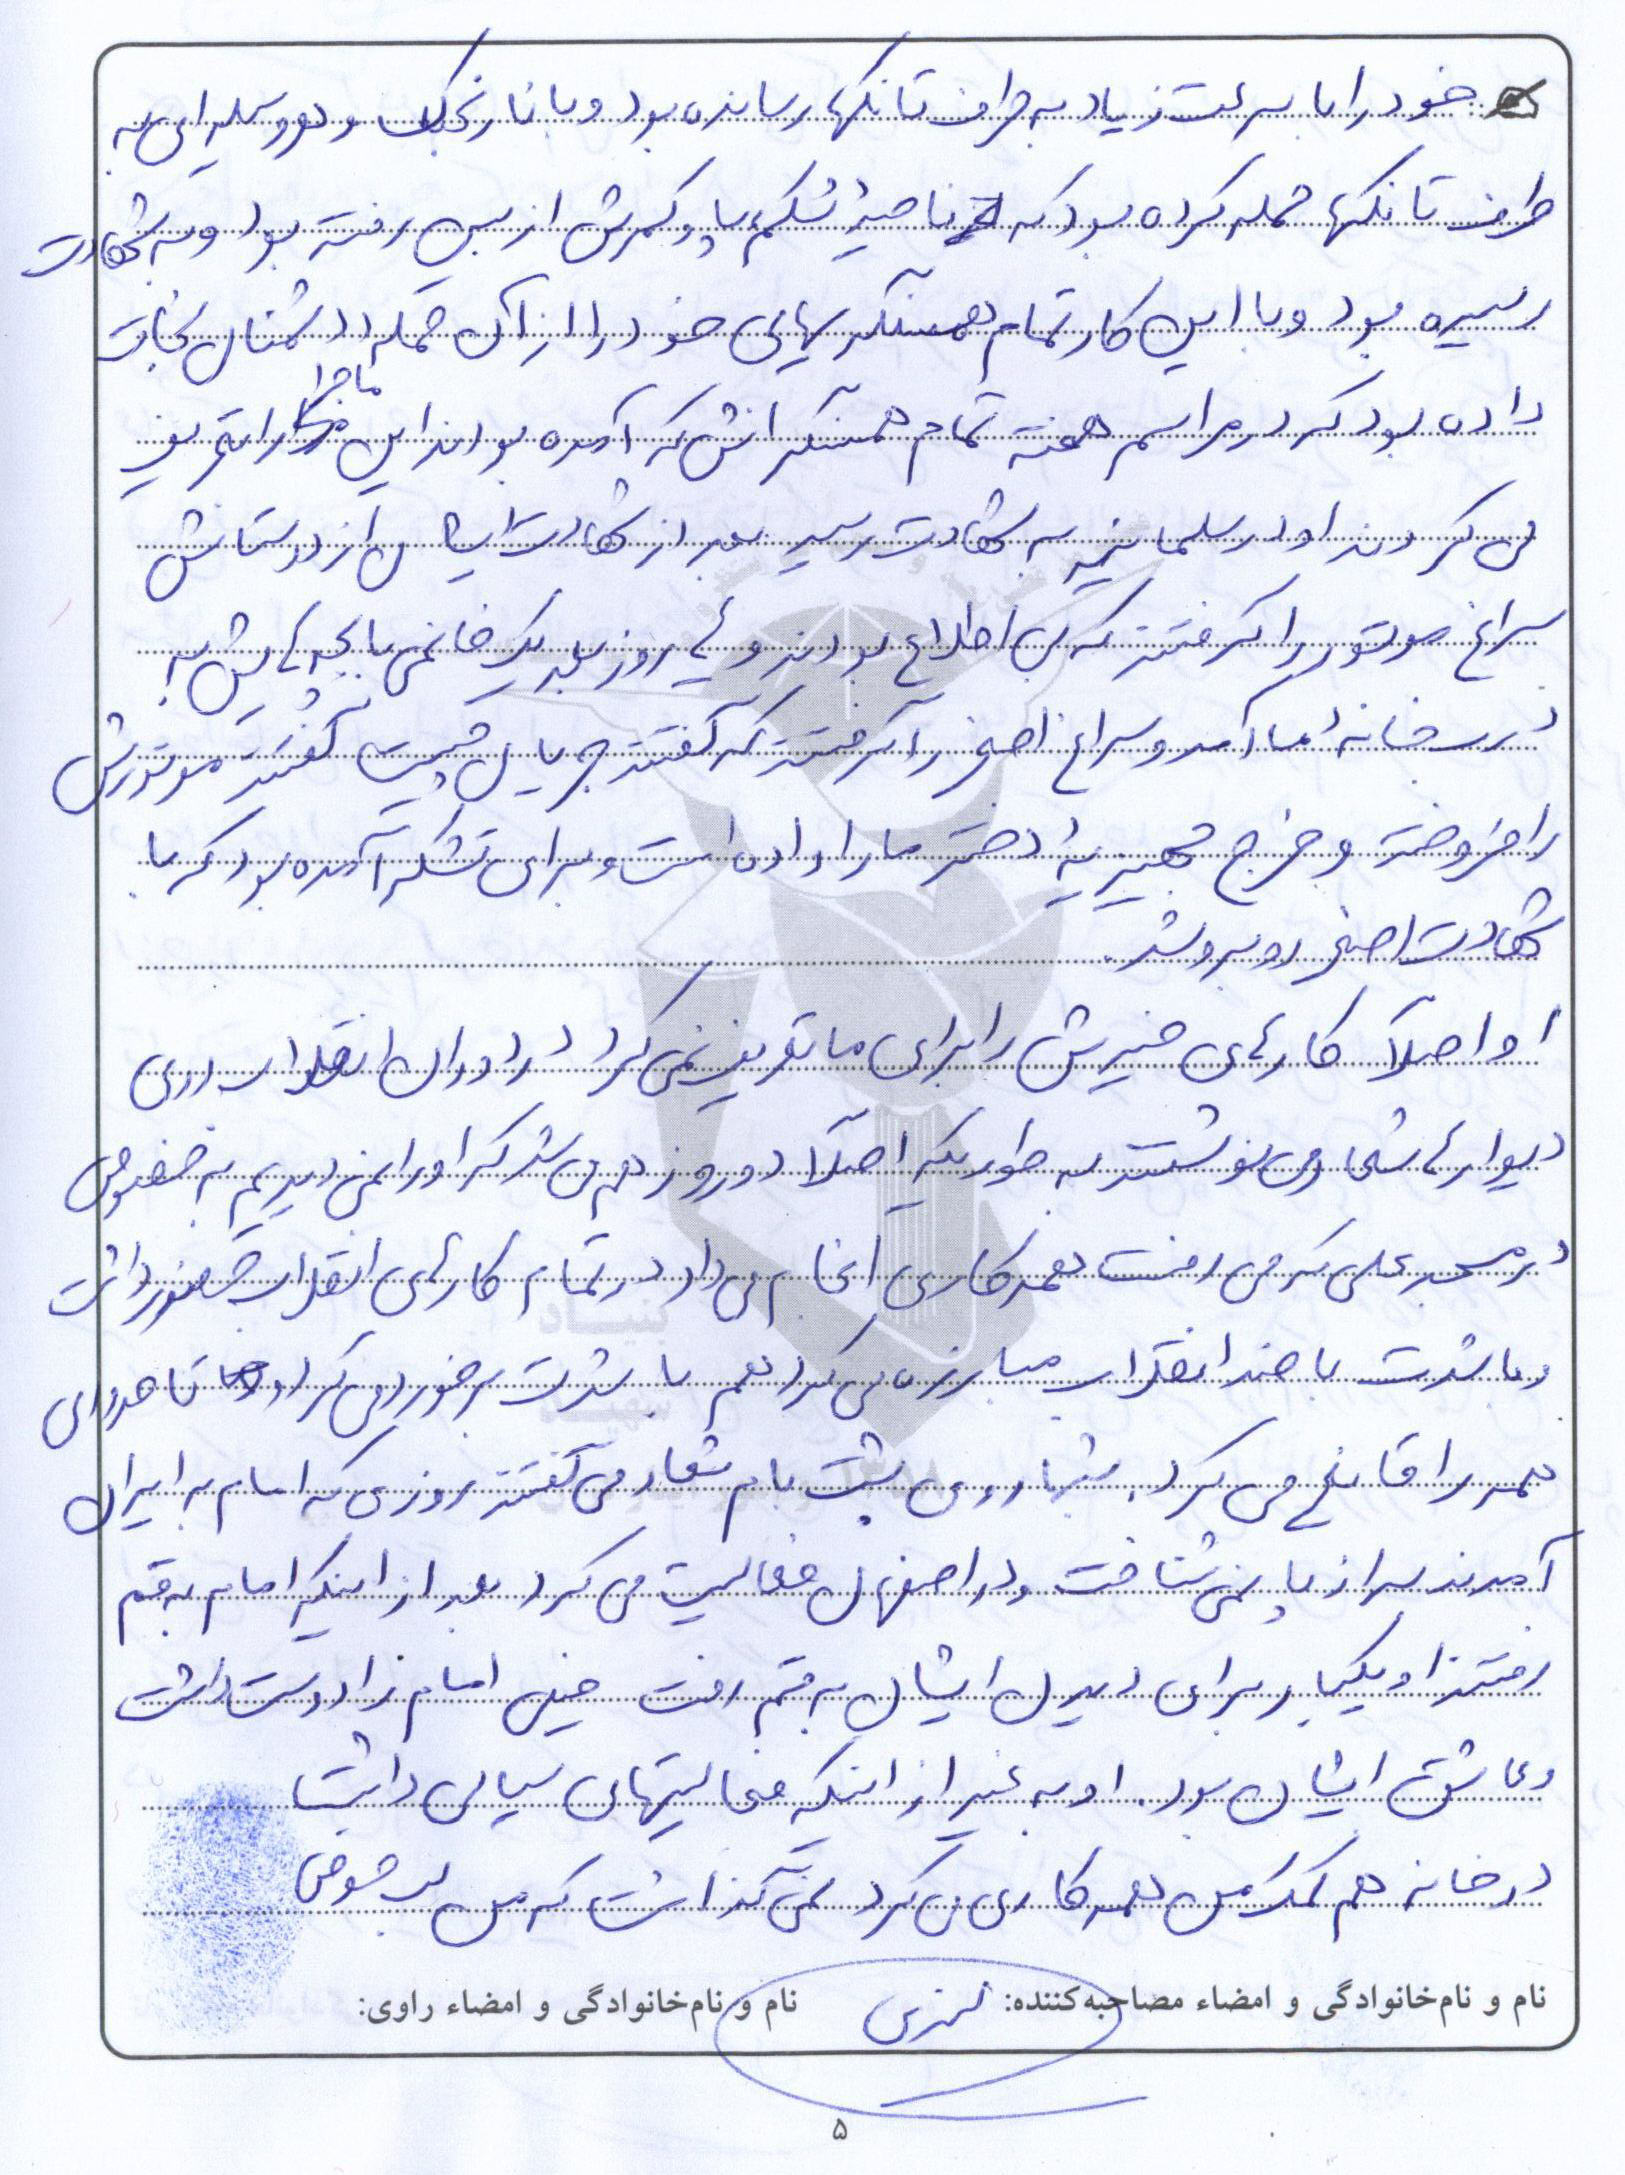 خود را با سرعت زیاد به طرف تانکها رسانده بود و با نارنجک و هر وسیله ای به
طرف تانکها حمله کرده بود که ناحیهٔ شکم پا و کمرش از بین رفته بود و به شهادت
رسیده بود و با این کار تمام همسنگریهای خود را از آن حمله دشمنان نجات
داده بود که در مراسم هفته تمام همسنگرانش که آمده بودند این ماجرا را تعریف
می کردند او در سلمانیه به شهادت رسید بعد از شهادت ایشان از دوستانش
سراغ موتور را گرفتند که بی اطلاع بودند و روز بعد یک خانمی با بچه هایش به
درب خانهٔ ما آمد و سراغ اصغر را گرفتند که گفتند جریان چیست گفتند موتورش
را فروخته و خرج جهیزیهٔ دختر ما را داده است و برای تشکر آمده بود که با
شهادت اصغر روبرو شد.
او اصلاً کارهای خیرش را برای ما تعریف نمی کرد در دوران انقلاب روی
دیوارها شعار می نوشتند به طوریکه اصلاً دو روز هم می شد که او را نمی دیدیم به خصوص
در مسجد علی که می رفت همه کاری انجام می داد در تمام کارهای انقلاب حضور داشت
و با شدت با ضد انقلاب مبارزه می کرد هم با شدت برخورد می کرد و تا حدودی
همه را قانع می کرد. شبها روی پشت بام شعار می گفتند روزی که امام به ایران
آمدند سر از پا نمی شناخت و در اصفهان فعالیت می کرد بعد از اینکه امام به قم
رفتند او یکبار برای دیدن ایشان به قم رفت خیلی امام را دوست داشت
و عاشق ایشان بود. او به غیر از اینکه فعالیتهای سیاسی داشت
در خانه هم کمک من همه کاری می کرد نمی گذاشت که من لب شویی
نام و نام‌خانوادگی و امضاء مصاحبه‌کننده:
نام و نام‌خانوادگی و امضاء راوی:
۵